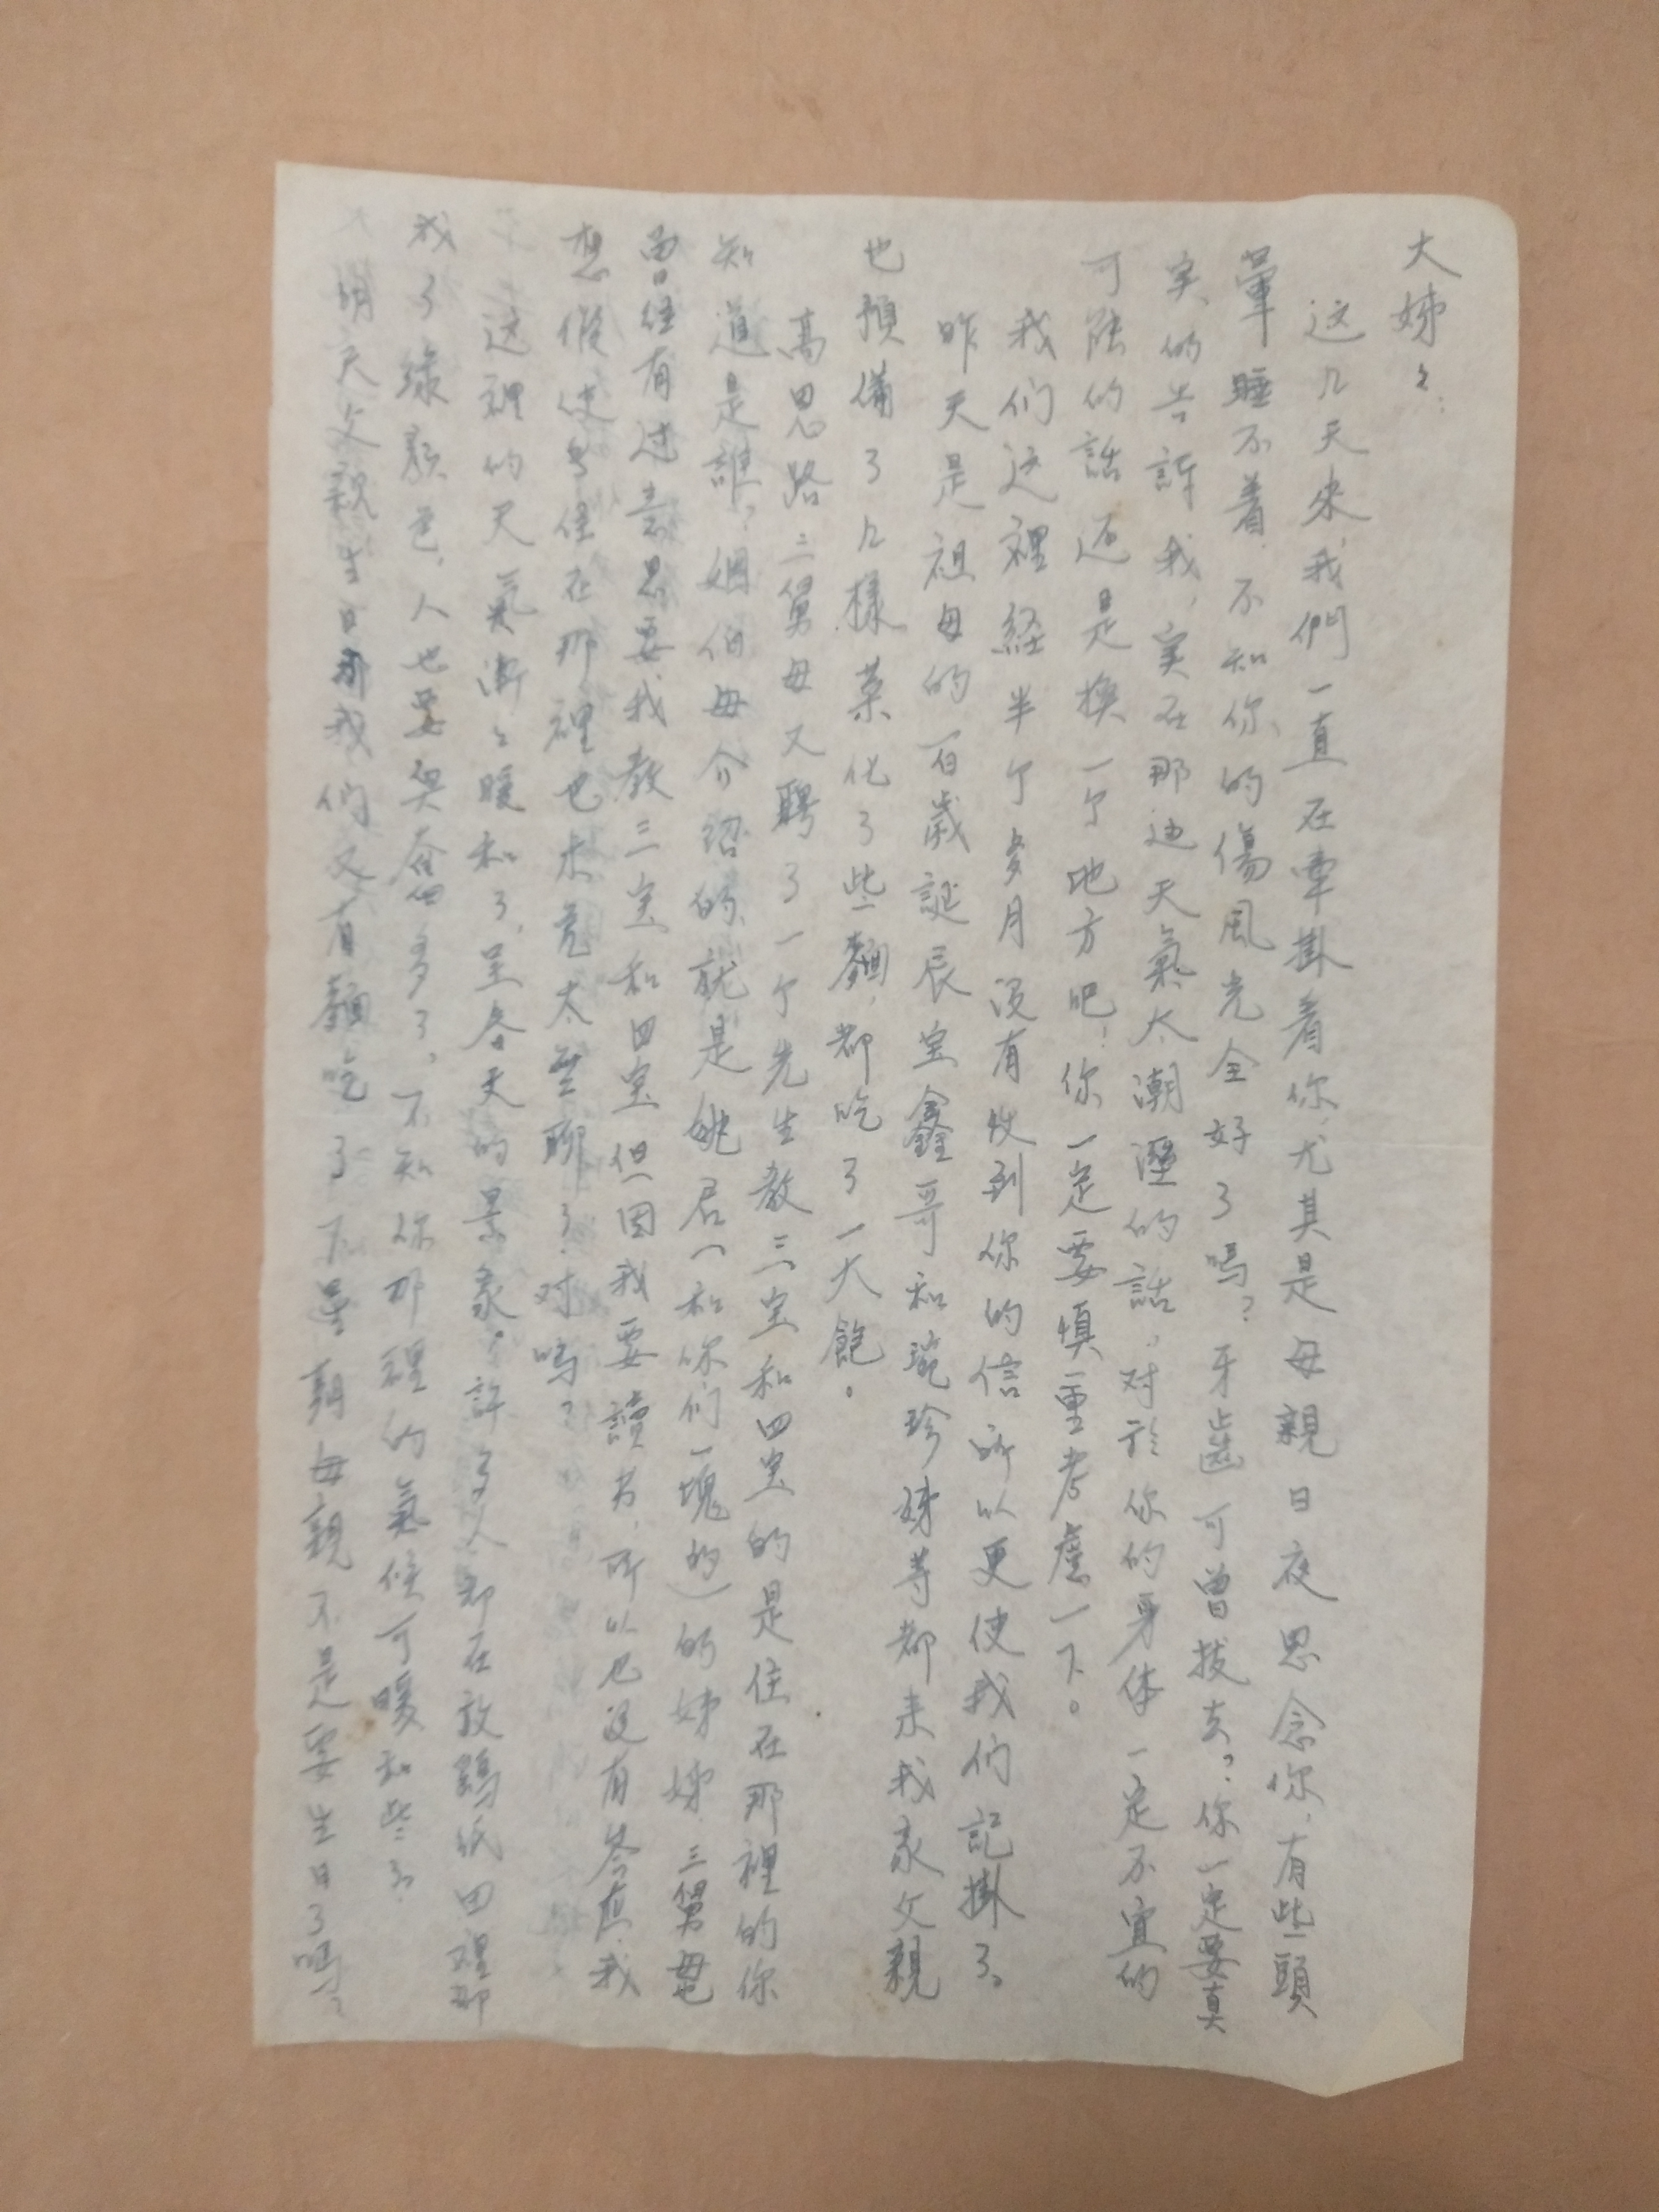 大姊々：
这几天来，我們一直在牽掛着你，尤其是母親日夜思念你，有些頭
暈睡不着，不知你的傷風完全好了嗎？牙齒可曾拔去？你一定要真
实的告訴我，实在那边天氣太潮溼的話，对於你的身体一定不宜的
可能的話还是換一个地方吧！你一定要慎重考慮一下。
我们这裡経半个多月没有收到你的信所以更使我们記掛了。
昨天是祖母的百歲誕辰宝鑫哥和琬珍姊等都来我家父親
也預備了几樣菜化了些麵，都吃了一大飽。
高恩路三舅母又聘了一个先生教三宝和四宝的是住在那裡的你
知道是誰？姻伯母介紹的就是姚君（和你们一塊的）的姊姊三舅母
曾経有过意思要我教三宝和四宝但因我要讀书，所以也没有答應，我
想假使住在那裡也未免太無聊了，对嗎？
这裡的天氣漸々暖和了，呈春天的景象，許多人都在放鷂紙田裡都
成了綠顏色，人也要興奮多了，不知你那裡的氣候可暖和些了？
明天父親生日我们又有麵吃了下星期母親不是要生日了嗎？